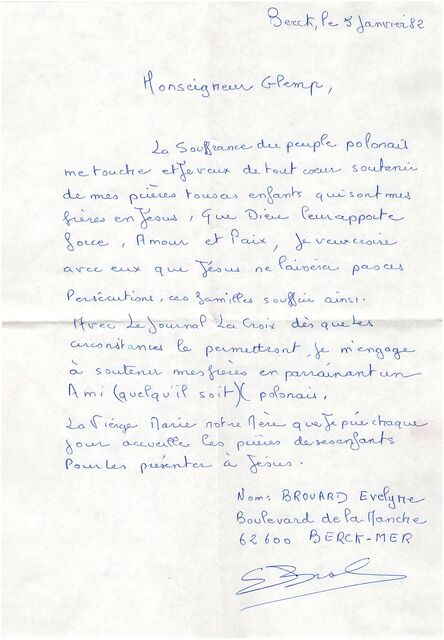 Berck, le 5 Janvier 82
Monseigneur Glemp,
La Souffrance du peuple polonais
me touche et Je veux de tout cœur soutenir
de mes prières tous ces enfants qui sont mes
frères en Jésus, Que Dieu leur apporte
force, Amour et Paix, Je veux croire
avec eux que Jésus ne laissera pas ces
Persécutions, ces familles souffrir ainsi.
Avec Le Journal La Croix dès que les
circonstances le permettront, Je m'engage
à soutenir mes frères en parrainant un
Ami (quelqu'il soit) polonais.
La Vierge Marie notre Mère que Je prie chaque
Jour accueille les prières de ses enfants
Pour les présenter à Jésus.
Nom: BROUARD Evelyne
Boulevard de la Manche
62600 BERCK-MER